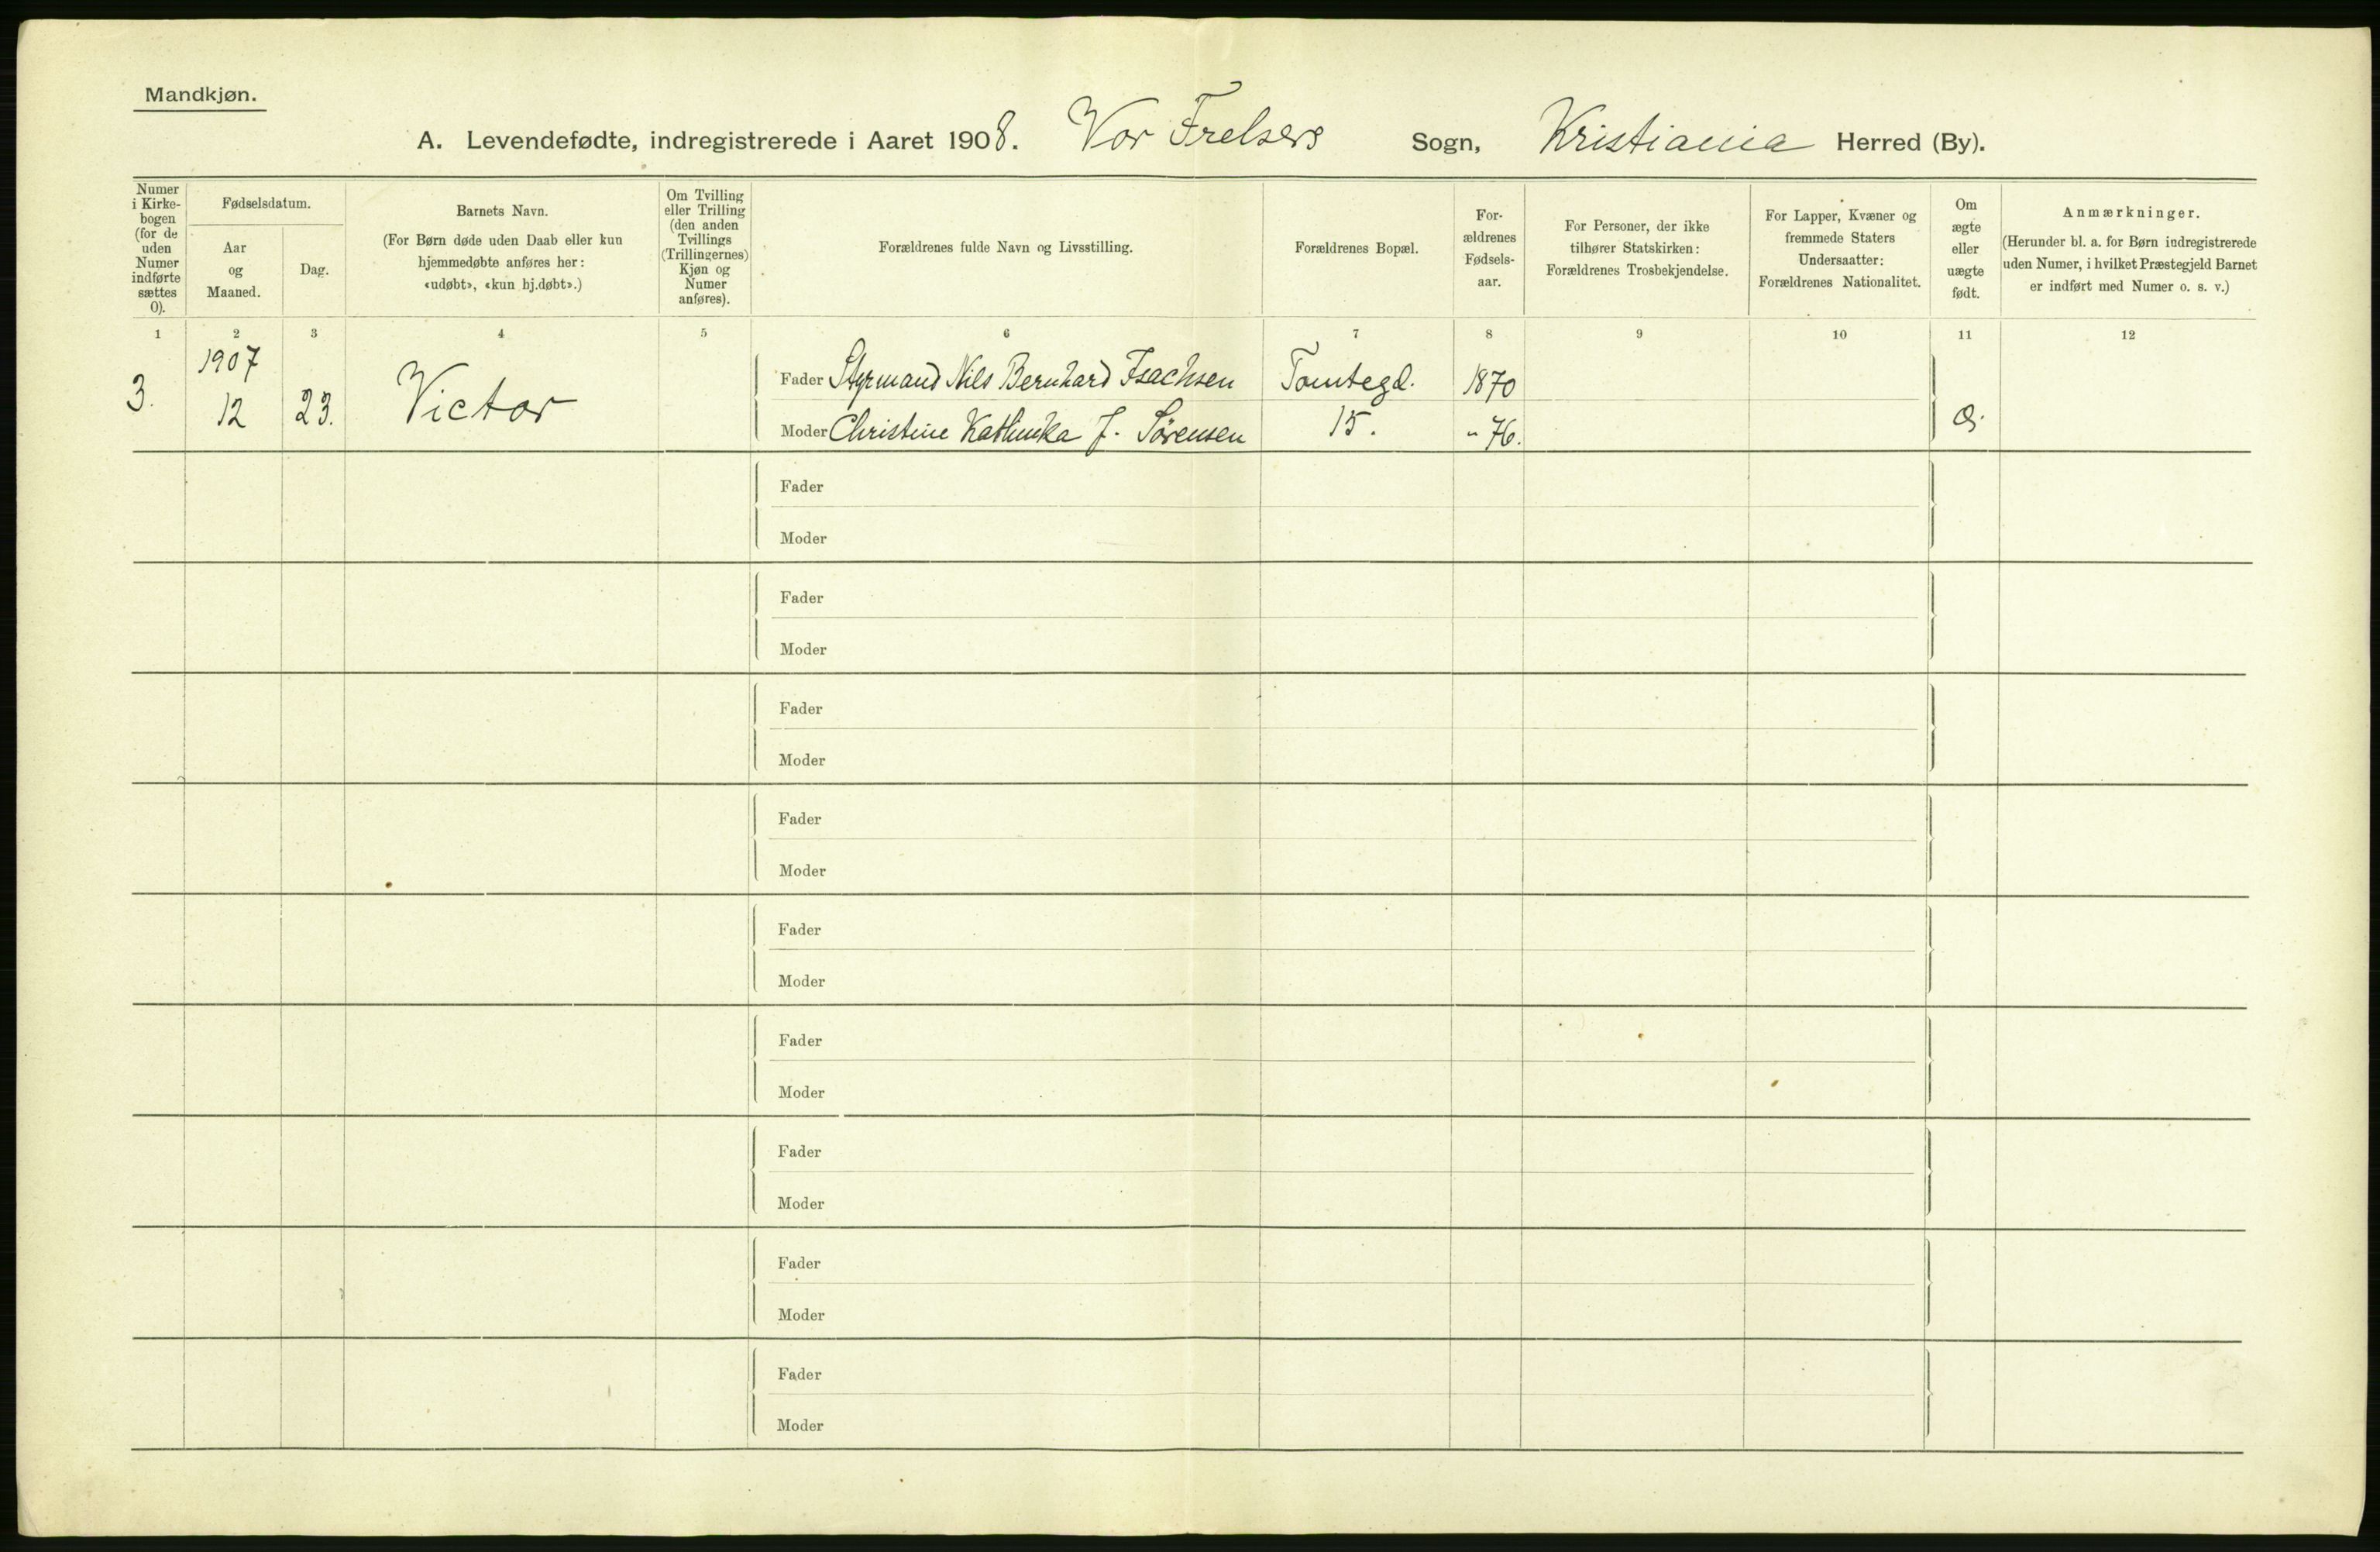 Mandkjøn.
A. Levendefødte, indregistrerede i Aaret 1908. Vor Frelsers Sogn, Kristiania Herred (By).
Numer
i Kirke-
bogen
(for de
uden
Numer
indførte
sættes
0).
Fødselsdatum.
Aar
og
Maaned.
Dag.
Barnets Navn.
(For Børn døde uden Daab eller kun
hjemmedøbte anføres her:
«udøbt», «kun hj.døbt».)
Om Tvilling
eller Trilling
(den anden
Tvillings
(Trillingernes)
Kjøn og
Numer
anføres).
Forældrenes fulde Navn og Livsstilling.
Forældrenes Bopæl.
For-
ældrenes
Fødsels-
aar.
For Personer, der ikke
tilhører Statskirken:
Forældrenes Trosbekjendelse.
For Lapper, Kvæner og
fremmede Staters
Undersaatter:
Forældrenes Nationalitet.
Om
ægte
eller
uægte
født.
Anmærkninger.
(Herunder bl. a. for Børn indregistrerede
uden Numer, i hvilket Præstegjeld Barnet
er indført med Numer o. s. v.)
1 2 3 4 5 6 7 8 9 10 11 12
1907
3. 12 23. Victor
Fader Styrmand Nils Bernhard Isachsen Tomtegd. 1870
Moder Christine Kathinka J. Sörensen 15. " 76.
Fader
Moder
Fader
Moder
Fader
Moder
Fader
Moder
Fader
Moder
Fader
Moder
Fader
Moder
Fader
Moder
Fader
Moder